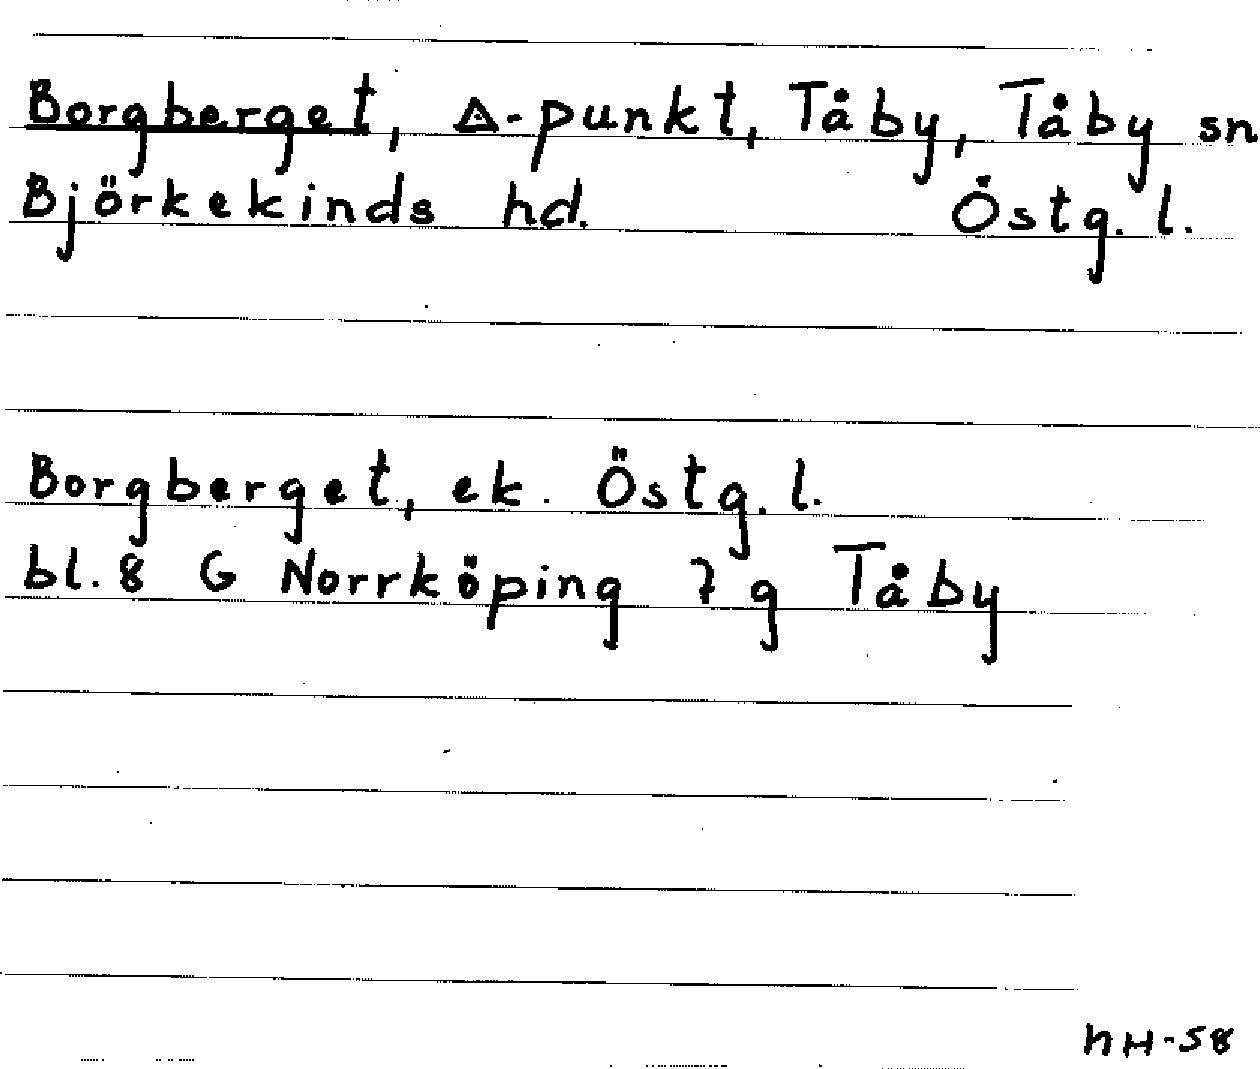 Borgberget, △-punkt, Tåby, Tåby sn
Björkekinds hd. Östg. l.
Borgberget, ek. Östg. l.
bl. 8 G Norrköping 7 g Tåby
hH-58